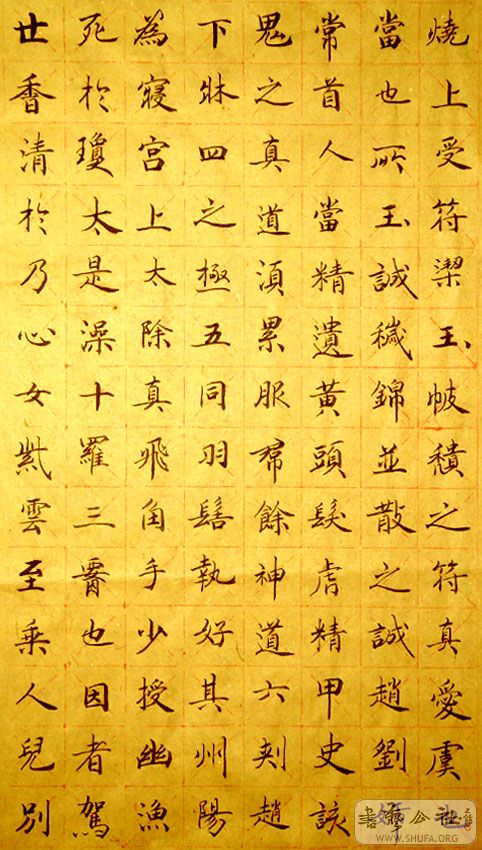 燒上受符潔玉帔積之符真愛虞
當也所玉誠穢錦並散之誠趙劉
常首人當精遺黃頭髮虐精甲史該
鬼之真道須累服帬餘神道六刾趙
下牀四之極五同羽髻執好其州陽
為寢宮上太除真飛角手少授幽漁
死於瓊太是澡十羅三也因者駕
廿香清於乃心女雲至乘人兒別
書法公社
WWW.SHUFA.ORG